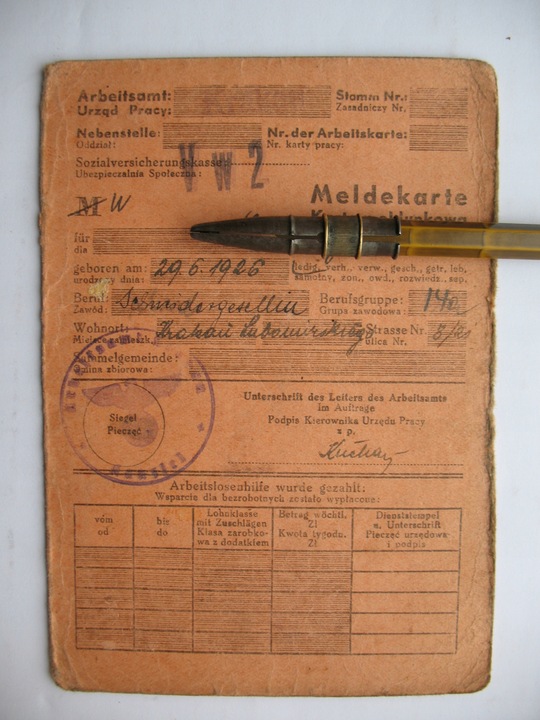 Arbeitsamt: Stamm Nr.:
Urząd Pracy: Zasadniczy Nr.
Nebenstelle: Nr. der Arbeitskarte:
Oddział: Nr. karty pracy:
Sozialversicherungskasse:
Ubezpieczalnia Społeczna:
V w 2
Meldekarte
M W
für
dla
geboren am: 29.6.1926 ledig, verh., verw., gesch., getr. leb.
urodzony dnia: samotny, żon., owd., rozwiedz., sep.
Beruf: Berufsgruppe: 14a
Zawód: Grupa zawodowa:
Wohnort: Krakau Strasse Nr.
Miejsce zamieszk. ulica Nr.
Sammelgemeinde:
Gmina zbiorowa:
Siegel
Pieczęć
Unterschrift des Leiters des Arbeitsamts
im Auftrage
Podpis Kierownika Urzędu Pracy
z p.
Arbeitslosenhilfe wurde gezahlt:
Wsparcie dla bezrobotnych zostało wypłacone:
vom bis Lohnklasse Betrag wöchtl. Dienststempel
od do mit Zuschlägen Zl u. Unterschrift
Klasa zarobko- Kwota tygodn. Pieczęć urzędowa
wa z dodatkiem Zl i podpis